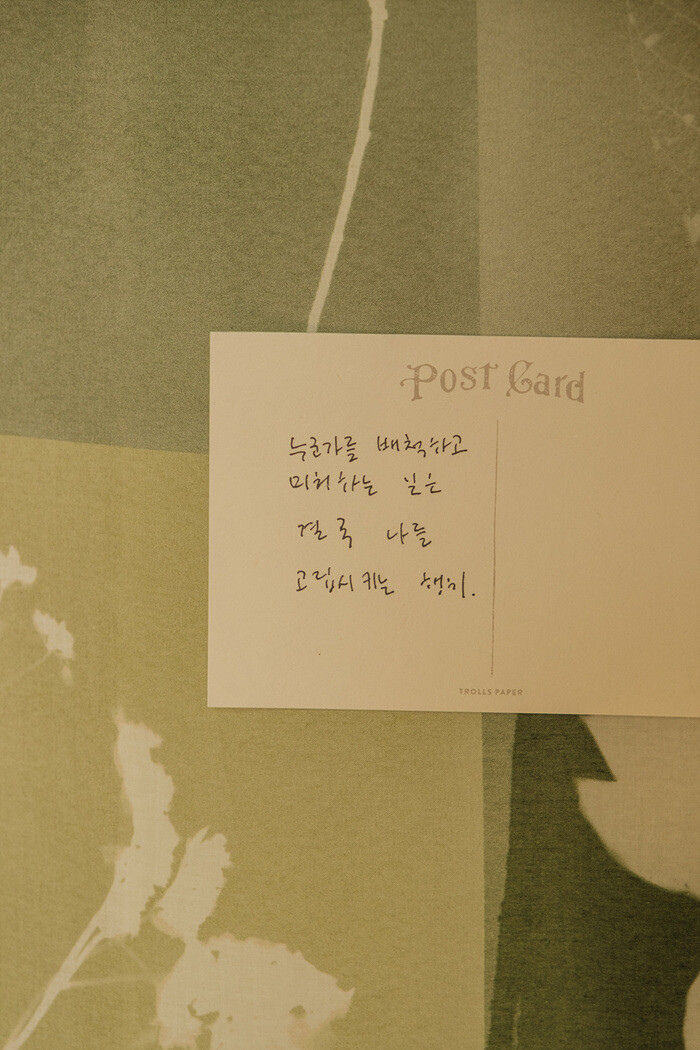 Post Card
누군가를 배척하고
미워하는 일은
결국 나를
고립시키는 행위.
TROLLS PAPER